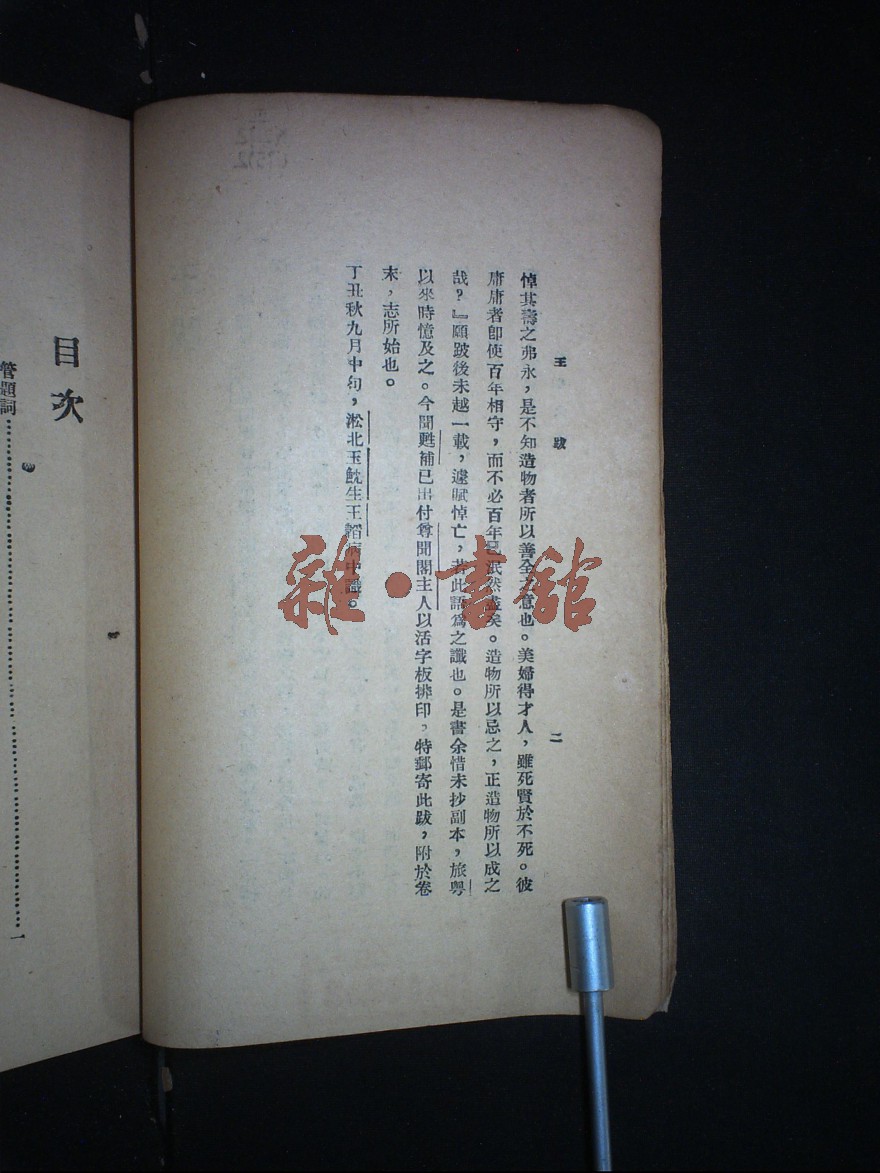 王跋
二
悼其壽之弗永，是不知造物者所以善全之意也。美婦得才人，雖死賢於不死。彼
庸庸者即使百年相守，而不必百年已泯然盡矣。造物所以忌之，正造物所以成之
哉？』顧跋後未越一載，遽賦悼亡，若此語為之讖也。是書余惜未抄副本，旅粵
以來時憶及之。今聞甦補已出付尊聞閣主人以活字板排印，特郵寄此跋，附於卷
末，志所始也。
丁丑秋九月中旬，淞北玉魫生王韜病中識。
目次
管題詞……………………一
雜·書舘